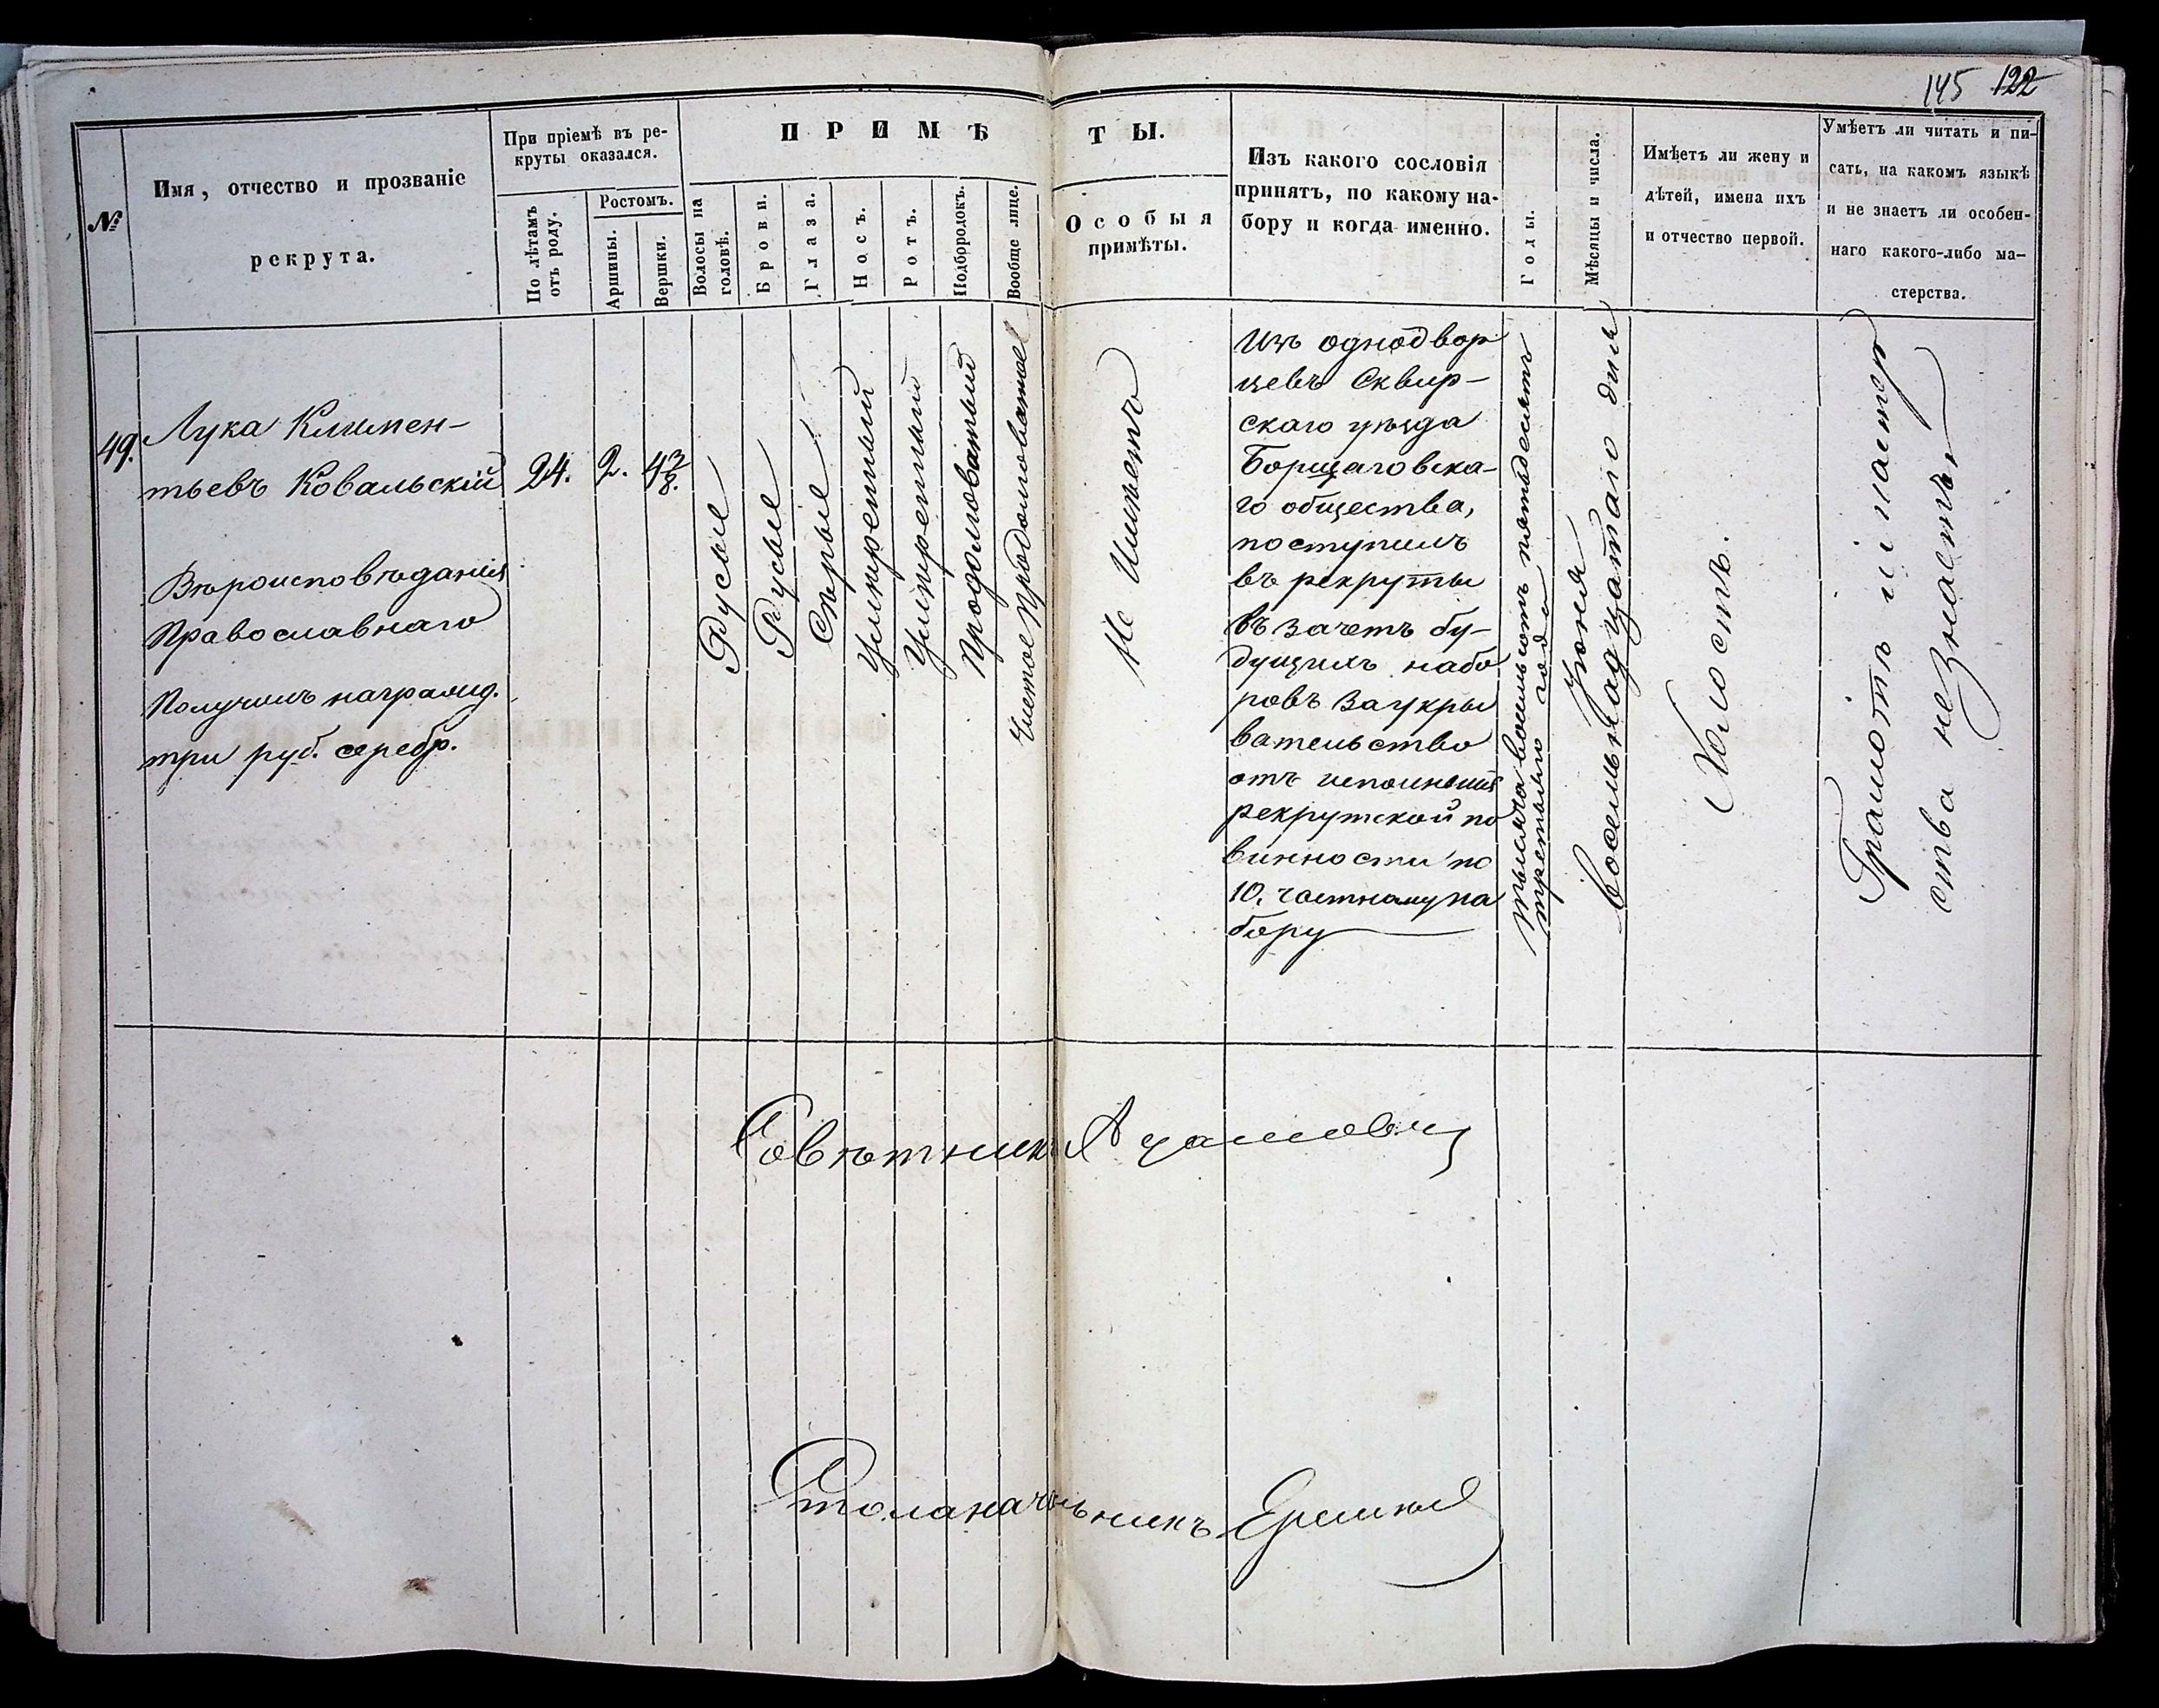 145 122
№
Имя, отчество и прозваніе
рекрута.
При пріемѣ въ ре-
круты оказался.
По лѣтамъ
отъ роду.
Ростомъ.
Аршины.
Вершки.
ПРИМѢТЫ.
Волосы на
головѣ.
Брови.
Глаза.
Носъ.
Ротъ.
Подбородокъ.
Вообще лице.
Особыя
примѣты.
Изъ какого сословія
принятъ, по какому на-
бору и когда именно.
Годы.
Мѣсяцы и числа.
Имѣетъ ли жену и
дѣтей, имена ихъ
и отчество первой.
Умѣетъ ли читать и пи-
сать, на какомъ языкѣ
и не знаетъ ли особен-
наго какого-либо ма-
стерства.
49.
Лука Климен-
тьевъ Ковальскій
Вѣроисповѣданія
Православнаго
Получилъ награжд.
три руб. серебр.
24.
2.
4 3/8.
Русые
Русые
Сѣрые
Умѣренный
Умѣренный
Продолговатый
Чистое продолговатое
Не Имѣетъ
Изъ однодвор
цевъ Сквир-
скаго уѣзда
Борщаговска-
го общества,
поступилъ
въ рекруты
въ зачетъ бу-
дущихъ набо
ровъ за укры
вательство
отъ исполненія
рекрутской по
винности по
10. частному на
бору
Тысяча восемьсотъ пятдесятъ
третьяго года
Іюня
восемьнадцатаго дня
Холостъ.
Грамотѣ и мастер
ства незнаетъ
Совѣтникъ
Столаначальникъ